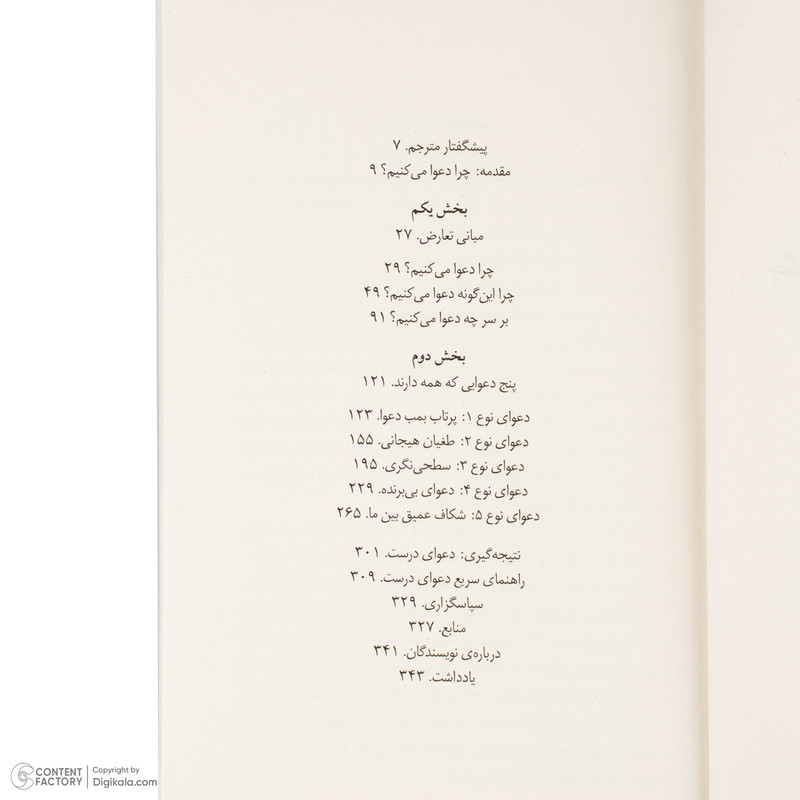 پیشگفتار مترجم. ۷
مقدمه: چرا دعوا می‌کنیم؟ ۹
بخش یکم
مبانی تعارض. ۲۷
چرا دعوا می‌کنیم؟ ۲۹
چرا این‌گونه دعوا می‌کنیم؟ ۴۹
بر سر چه دعوا می‌کنیم؟ ۹۱
بخش دوم
پنج دعوایی که همه دارند. ۱۲۱
دعوای نوع ۱: پرتاب بمب دعوا. ۱۲۳
دعوای نوع ۲: طغیان هیجانی. ۱۵۵
دعوای نوع ۳: سطحی‌نگری. ۱۹۵
دعوای نوع ۴: دعوای بی‌برنده. ۲۲۹
دعوای نوع ۵: شکاف عمیق بین ما. ۲۶۵
نتیجه‌گیری: دعوای درست. ۳۰۱
راهنمای سریع دعوای درست. ۳۰۹
سپاسگزاری. ۳۲۹
منابع. ۳۲۷
درباره‌ی نویسندگان. ۳۴۱
یادداشت. ۳۴۳
CONTENT FACTORY
Copyright by
Digikala.com